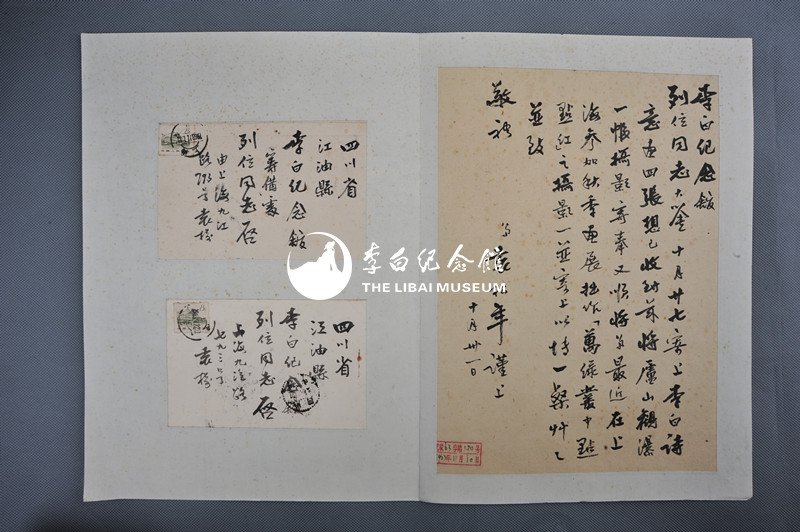 李白纪念館
列位同志大鑒 十月廿七寄上李白詩
意画四張想已收到茲將廬山觀瀑
一幀攝影寄奉又順將弟最近在上
海參加秋季画展拙作「萬綠叢中點
點紅」之攝影一並寄上以博一粲
並致
敬礼
弟袁松年謹上
十月卅一日
四川省
江油縣
李白纪念館
籌備處
列位同志啓
由上海九江
路793号袁椷
四川省
江油縣
李白纪念館
列位同志啓
上海九江路
七九三号
袁椷
李白纪念館
THE LIBAI MUSEUM